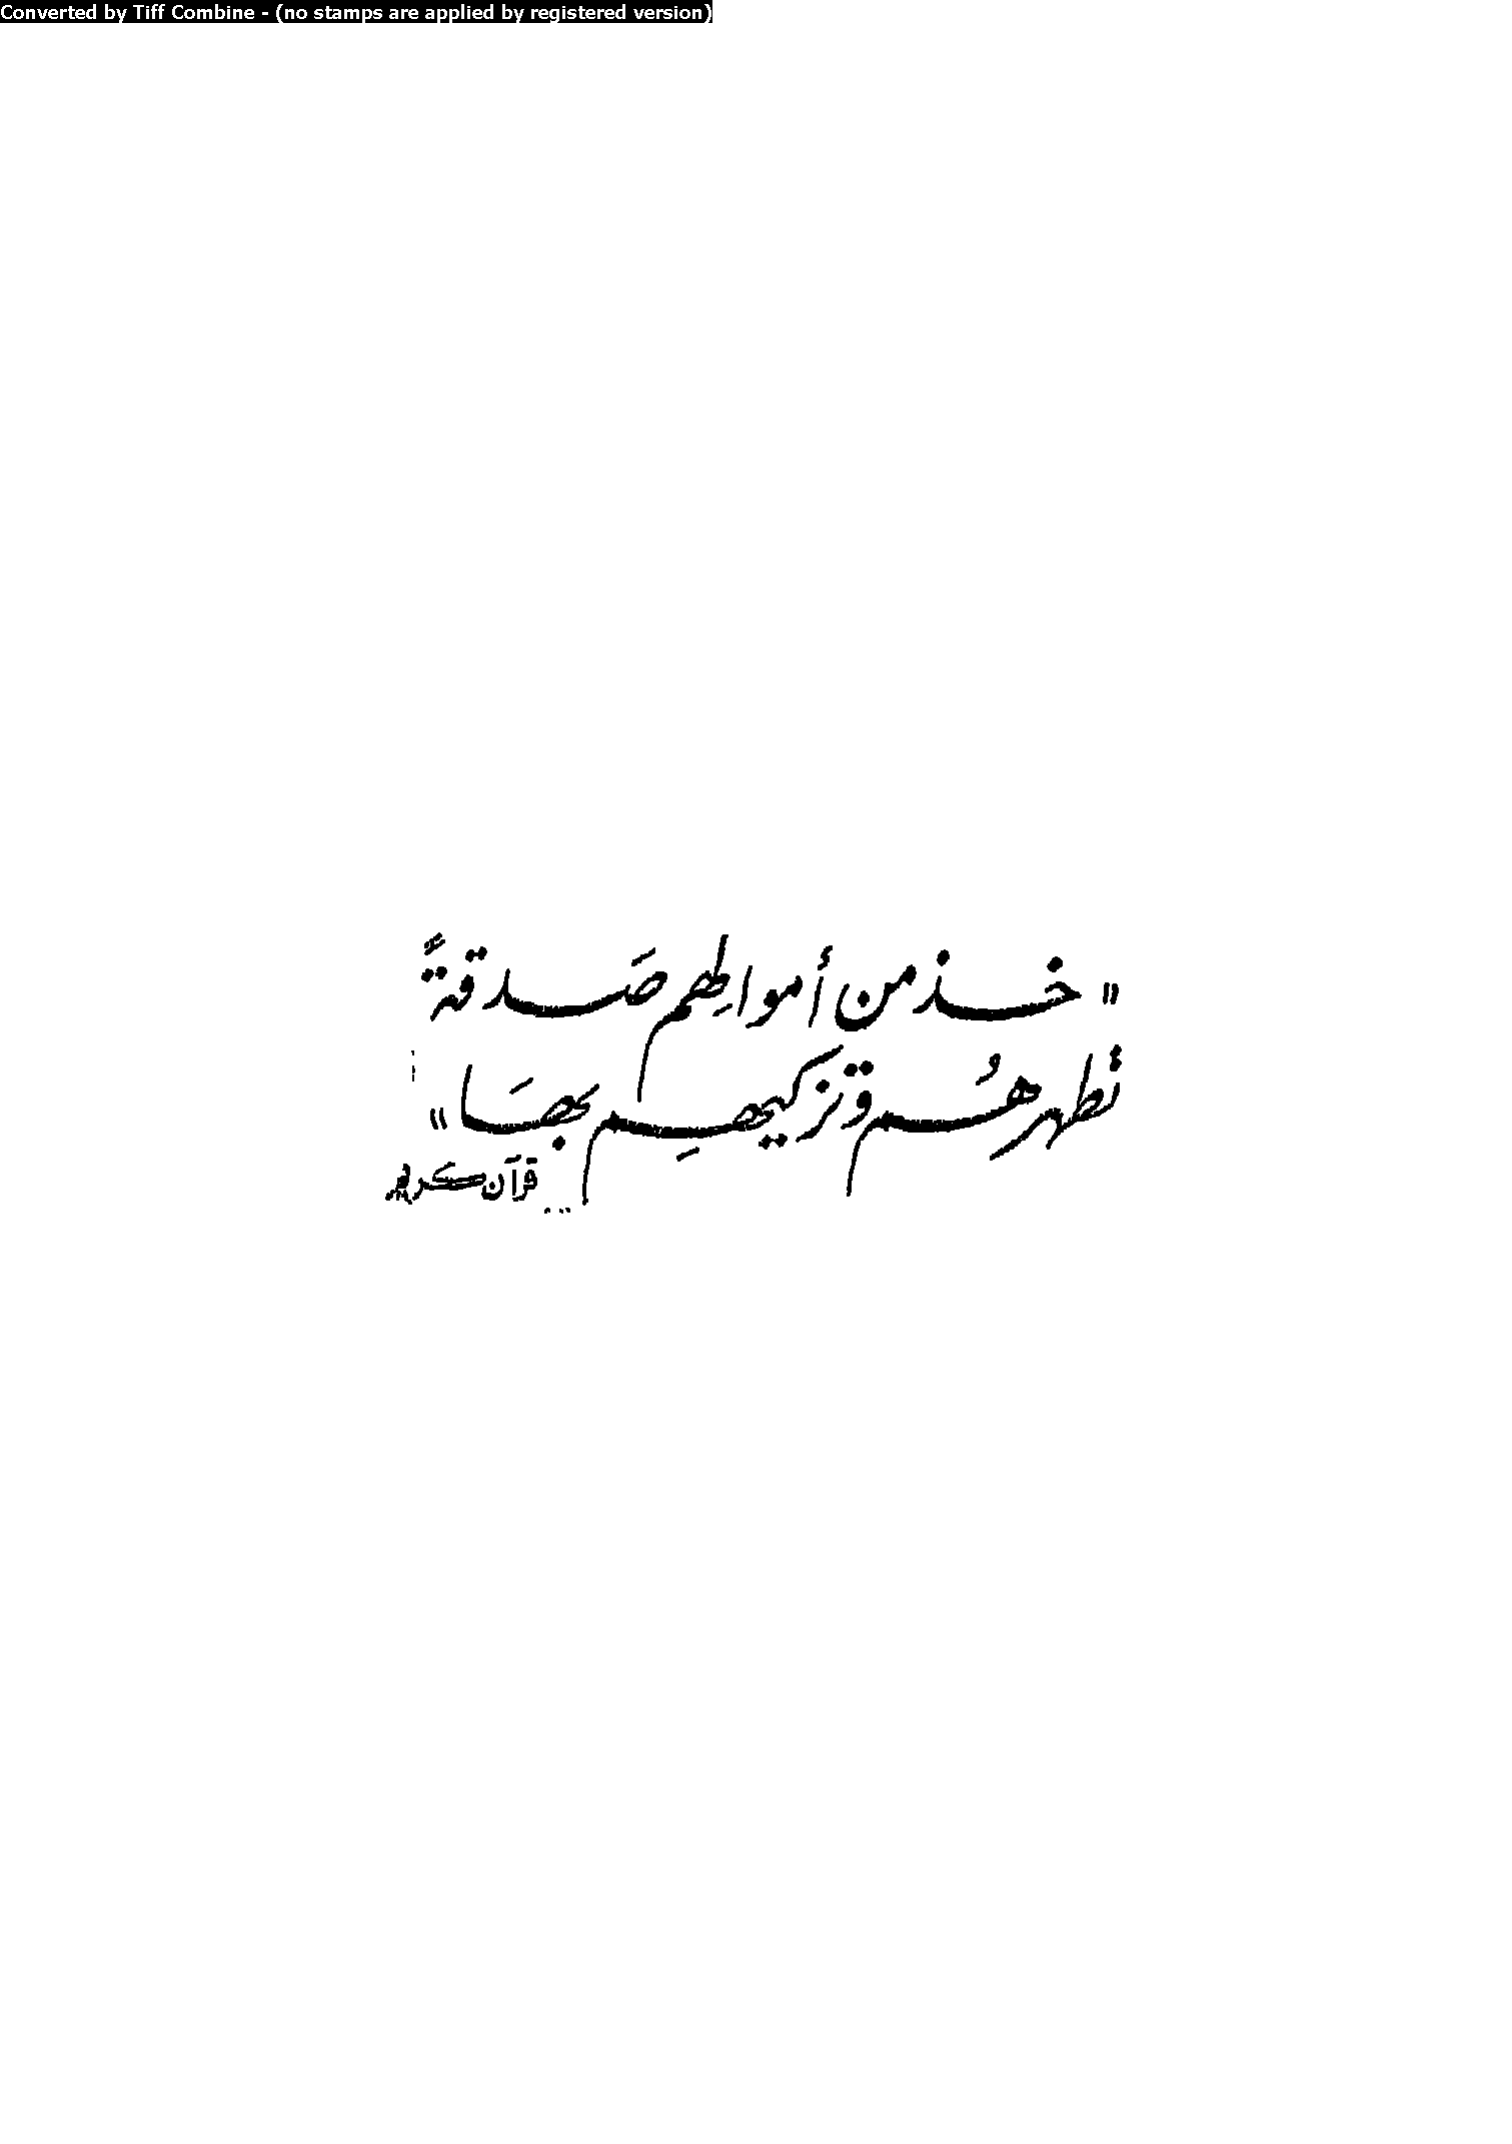 Converted by Tiff Combine - (no stamps are applied by registered version)
" خذ من أموالهم صَدقةً
تطهرهُم وتزكيهِم بهَا "
قرآن كريم